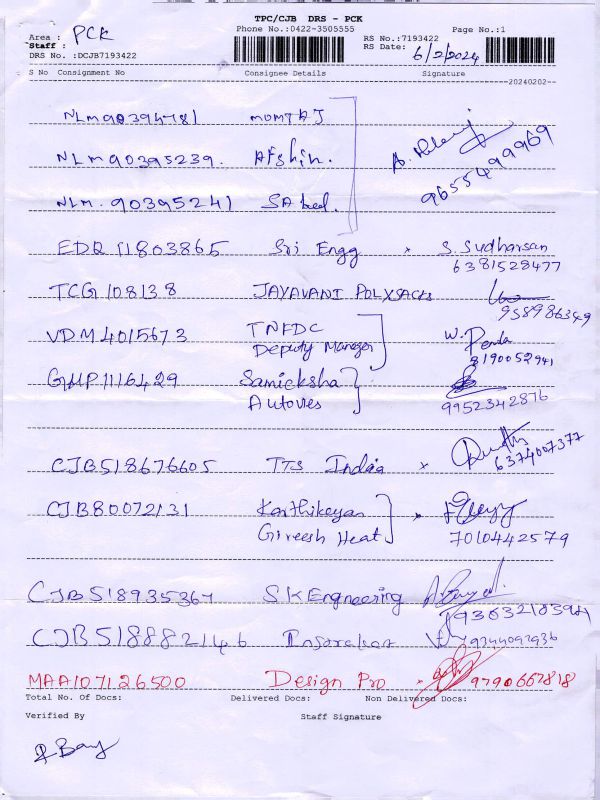 TPC/CJB DRS - PCK
Phone No.:0422-3505555 Page No.:1
Area : PCK RS No.:7193422
Staff : RS Date: 6/2/2024
DRS No. :DCJB7193422
S No Consignment No Consignee Details Signature
20240202
NLM90394781 MOMTAJ
NLM90395239. Afshin. 9655499969
NLM. 90395241
EDR 11803865 Sri Engg × S. Sudharsan
6381528477
TCG 108138 JAYAVANI POLYSACKS
958986349
VDM4015673 TNFDC W.
Deputy Manager 8190052941
GMP1116429 Samieksha
9952342876
CJB518676605 TTS India × 6374007377
CJB80072131 Karthikeyan
Gireesh Heat 7010442579
CJB518935367 SK Engneering
CJB518882146 9344092936
MAA107126500 Design Pro 9790667818
Total No. Of Docs: Delivered Docs: Non Delivered Docs:
Verified By Staff Signature